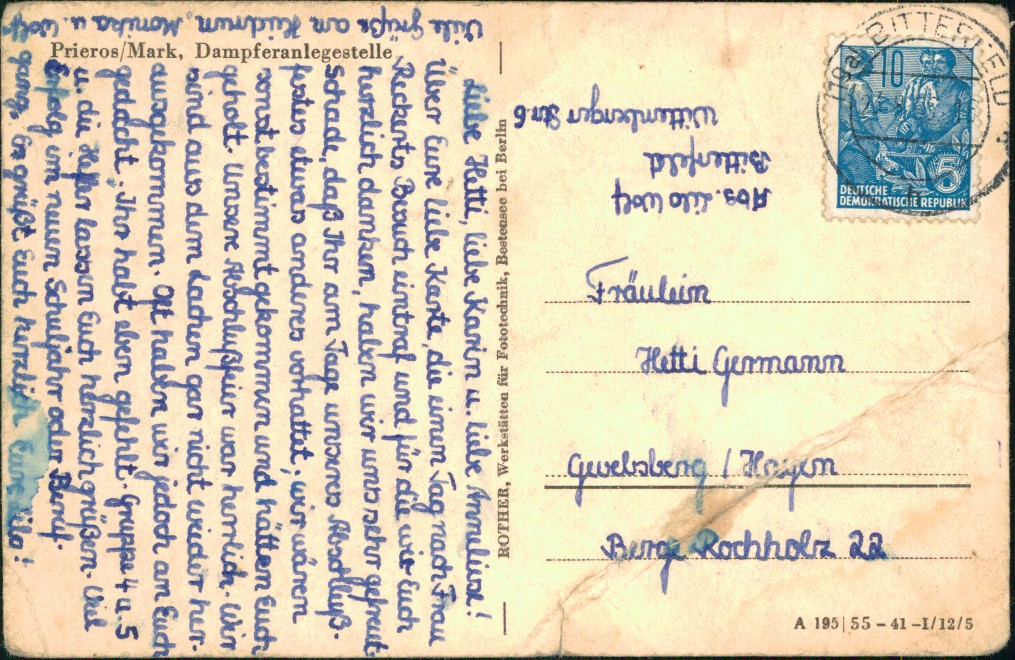 Prieros/Mark, Dampferanlegestelle
Liebe Hetti, liebe Karin u. liebe Anneliese!
Über Eure liebe Karte, die einen Tag nach Frau
Reckerts Besuch eintraf und für die wir Euch
herzlich danken, haben wir uns sehr gefreut.
Schade, daß Ihr am Tage unseres Abschluß-
festes etwas anderes vorhattet, wir wären
sonst bestimmt gekommen und hätten Euch
geholt. Unsere Abschlußfeier war herrlich. Wir
sind aus dem Lachen gar nicht wieder her-
ausgekommen. Oft haben wir jedoch an Euch
gedacht. Ihr habt eben gefehlt. Gruppe 4 u. 5
u. die Helfer lassen Euch herzlich grüßen. Viel
Erfolg im neuen Schuljahr oder Beruf.
ganz. Es grüßt Euch herzlich Eure Lilo!
Viele Grüße an Heidrun, Monika u. Wolf-
ROTHER, Werkstätten für Fototechnik, Bestensee bei Berlin
Abs. Lilo Wolf
Bitterfeld
Wittenberger Str. 6
10
5
DEUTSCHE
DEMOKRATISCHE REPUBLIK
BITTERFELD
Fräulein
Hetti Germann
Gevelsberg / Hagen
Berge Rochholz 22
A 195|55 - 41 - I/12/5